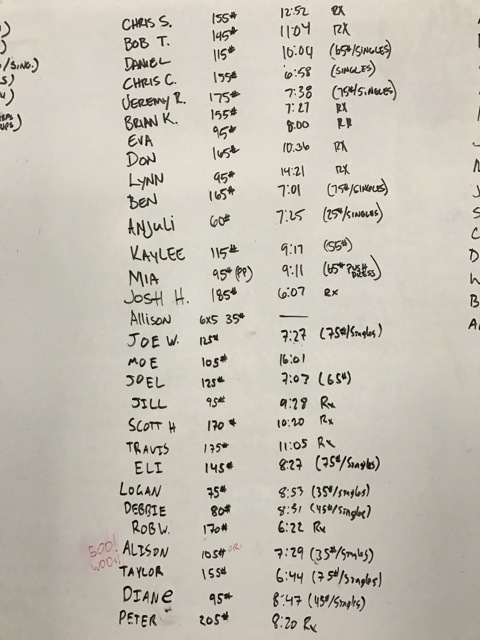 CHRIS S. 155# 12:52 RX
BOB T. 145# 11:04 RX
DANIEL 115# 10:04 (65#/SINGLES)
/SING.) CHRIS C. 155# 6:58 (SINGLES)
S) JEREMY R. 175# 7:38 (75#/SINGLES)
BRIAN K. 155# 7:27 RX
UPS) EVA 95# 8:00 RX
DON 165# 10:36 RX
LYNN 95# 14:21 RX
BEN 165# 7:01 (75#/SINGLES)
ANJULI 60# 7:25 (25#/SINGLES)
KAYLEE 115# 9:17 (55#)
MIA 95# (PP) 9:11 (65# PUSH PRESS)
JOSH H. 185# 6:07 RX
Allison 6x5 35# —
JOE W. 125# 7:27 (75#/Singles)
MOE 105# 16:01
JOEL 125# 7:07 (65#)
JILL 95# 9:28 Rx
SCOTT H 170# 10:20 Rx
TRAVIS 175# 11:05 Rx
ELI 145# 8:27 (75#/Singles)
LOGAN 75# 8:53 (35#/Singles)
DEBBIE 80# 8:51 (45#/Singles)
ROB W. 170# 6:22 Rx
500! ALISON 105# 7:29 (35#/Singles)
WODs! TAYLOR 155# 6:44 (75#/Singles)
DIANE 95# 8:47 (45#/Singles)
PETER 205# 8:20 Rx